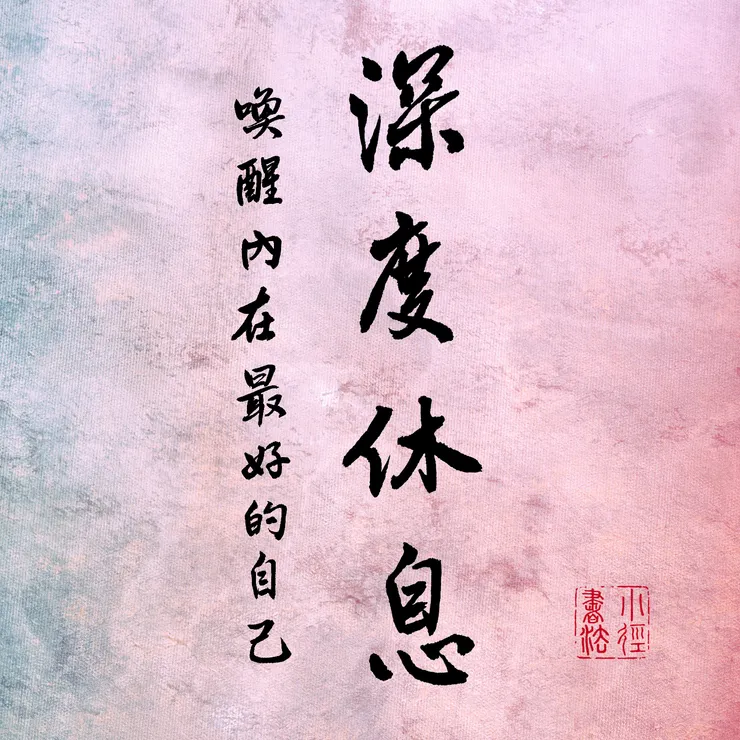 深度休息
喚醒內在最好的自己
小徑
書法